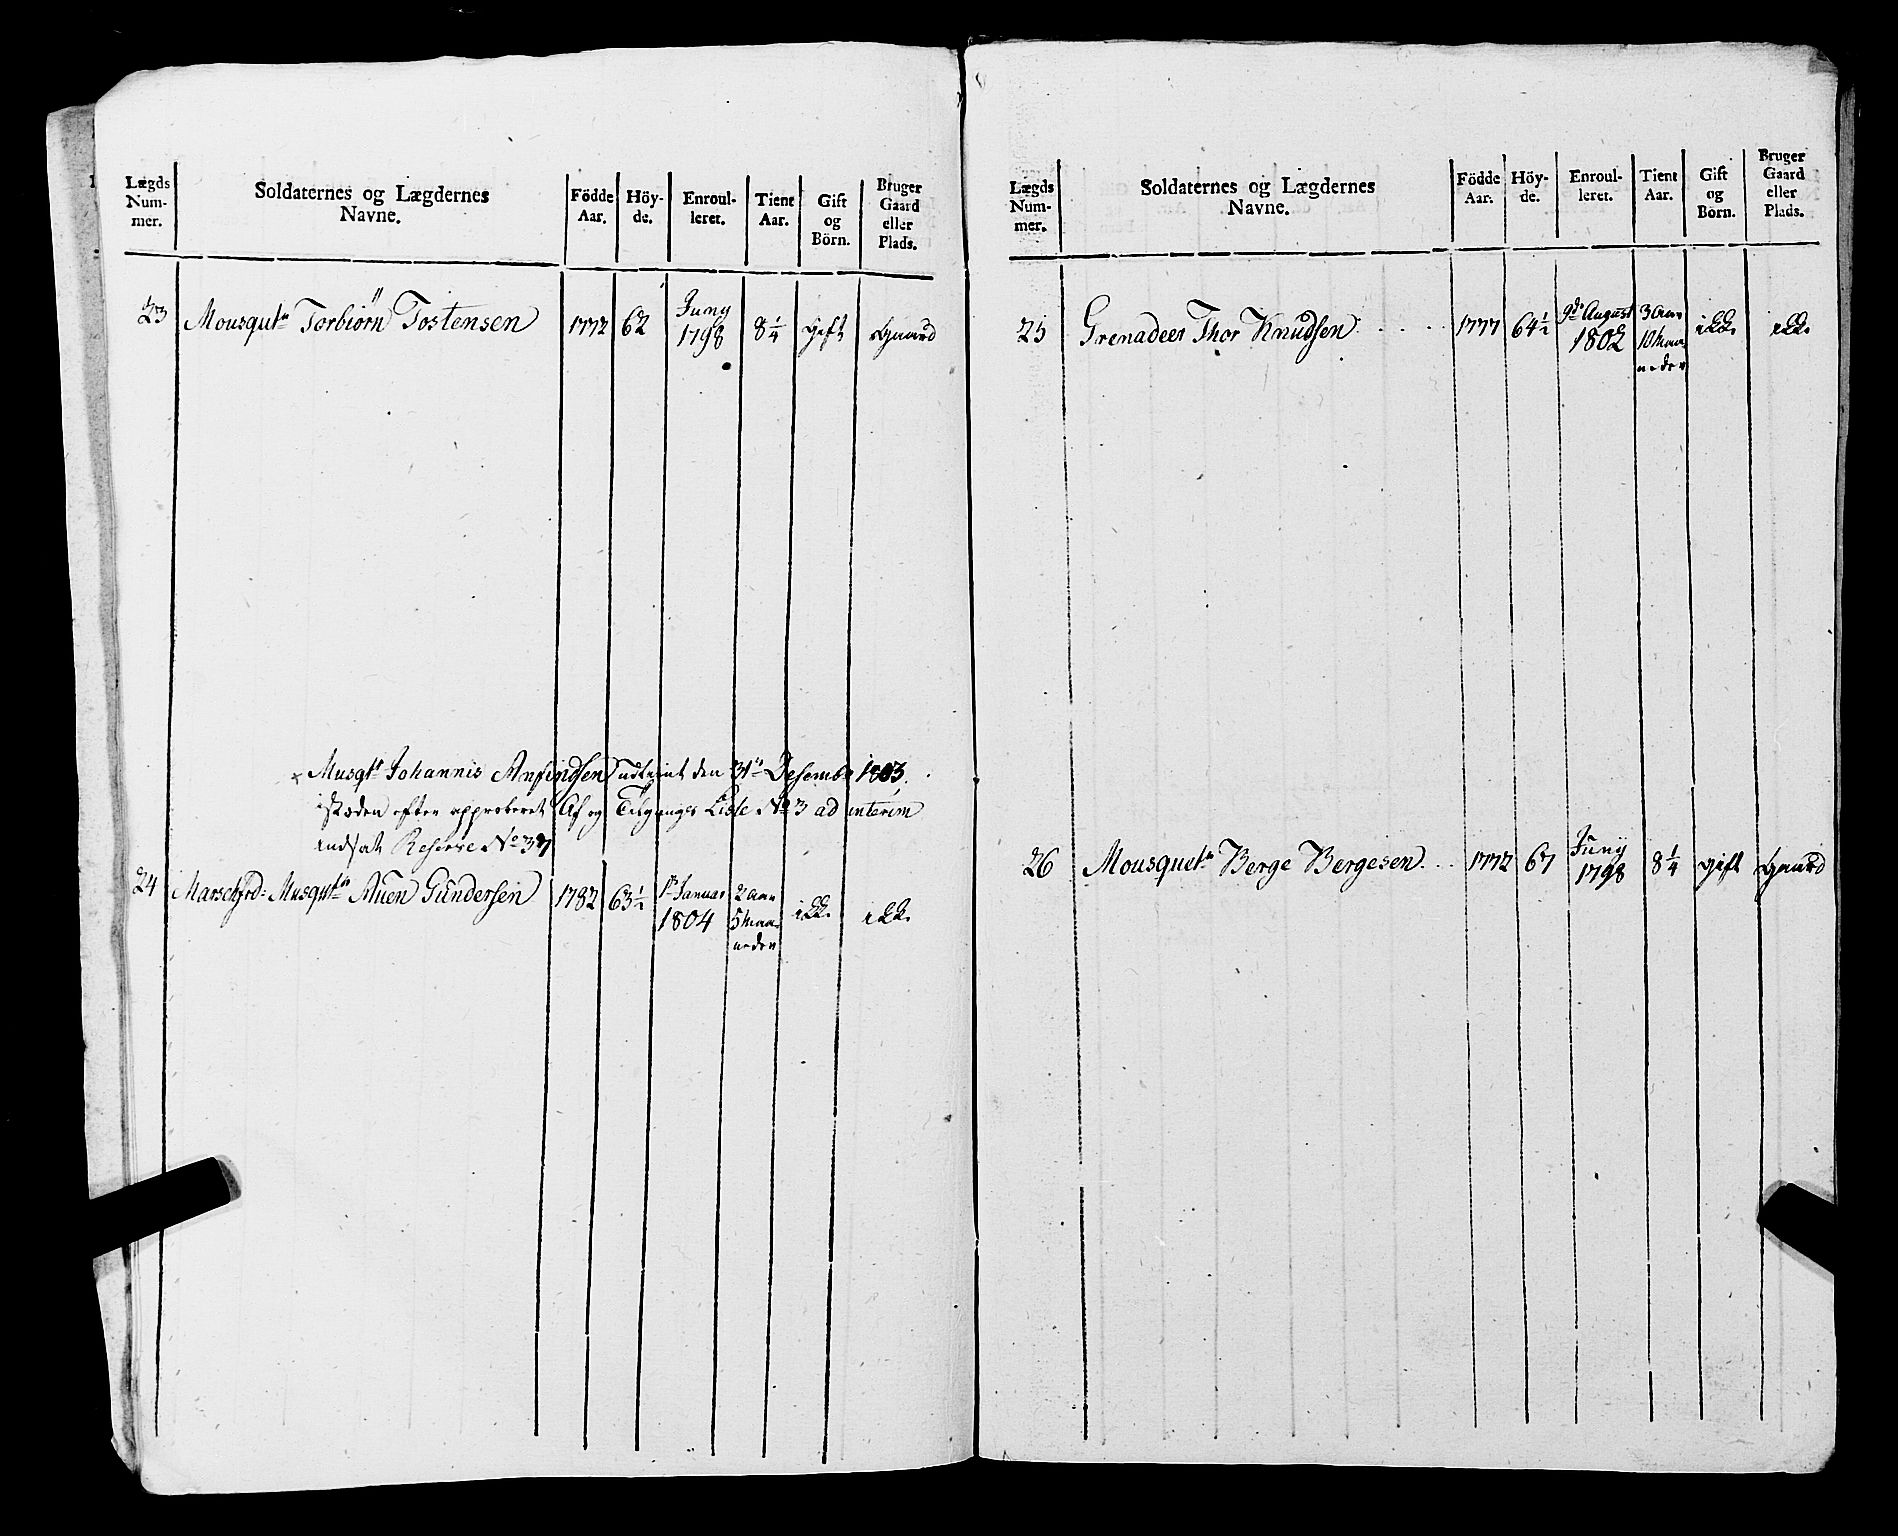 Lægds Num- mer.
Soldaternes og Lægdernes Navne.
Födde Aar.
Höy- de.
Enroul- leret.
Tient Aar.
Gift og Börn.
Bruger Gaard eller Plads.
23 Mousqutr Torbiörn Tostensen 1772 62 Juny 1798 8 1/4 gift Gaard
x Musqtr Johannis Anfindsen udtient den 31te Desembr 1803,
istæden efter approberet Af og Tilgangs Liste No 3 ad interim
indsat Reserve No 37
24 Marschfrd: Musqutr Auen Gundersen 1782 63 1/2 1te Januar 1804 2 Aar 5 Maa- neder ikke ikke
Lægds Num- mer.
Soldaternes og Lægdernes Navne.
Födde Aar.
Höy- de.
Enroul- leret.
Tient Aar.
Gift og Börn.
Bruger Gaard eller Plads.
25 Grenadeer Thor Knudsen 1777 64 1/2 9de August 1802 3 Aar 10 Maa- neder ikke ikke
26 Mousquetr Berge Bergesen 1772 67 Juny 1798 8 1/4 gift Gaard